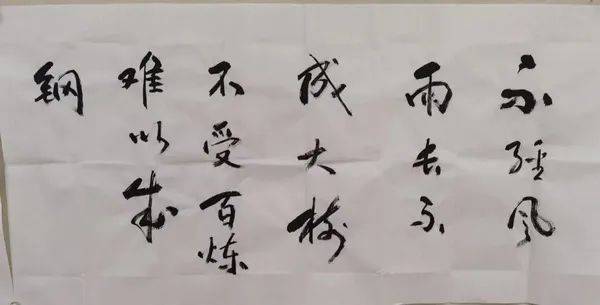 不经风
雨长不
成大树
不受百炼
难以成
钢